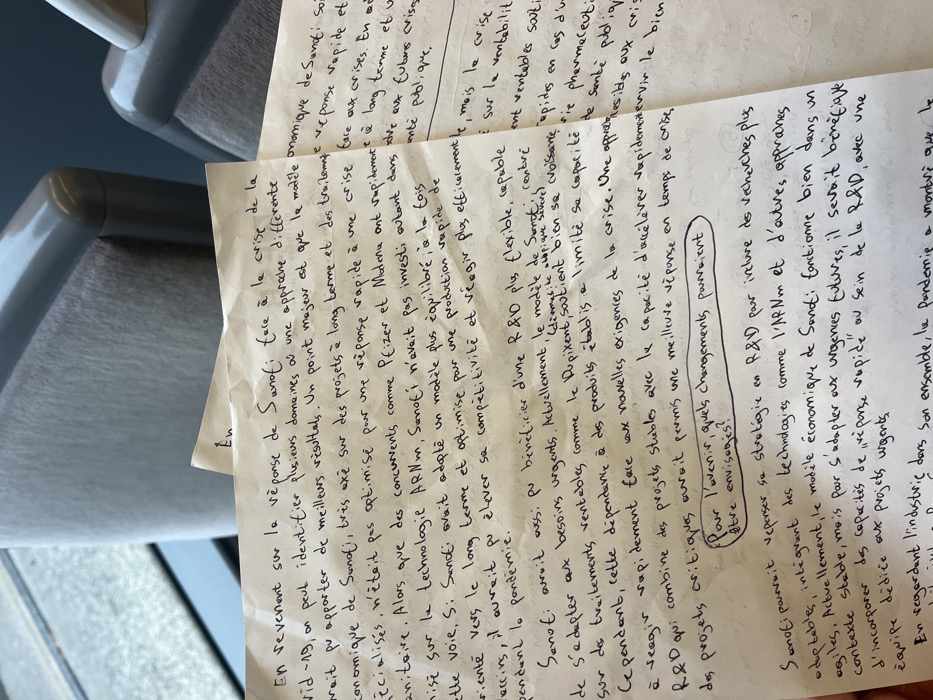 En revenant sur la réponse de Sanofi face à la crise de la
vid-19, on peut identifier plusieurs domaines où une approche différente
rait pu apporter de meilleurs résultats. Un point majeur est que le modèle
onomique de Sanofi, très axé sur des projets à long terme et des traitements
écialisés, n'était pas optimisé pour une réponse rapide à une crise
nitaire. Alors que des concurrents comme Pfizer et Moderna ont rapidement
isé sur la technologie ARNm, Sanofi n'avait pas investi autant dans
tte voie. Si Sanofi avait adopté un modèle plus équilibré, à la fois
rienté vers le long terme et optimisé pour une production rapide de
accins, il aurait pu élever sa compétitivité et réagir plus efficacement
pendant la pandémie.
Sanofi aurait aussi pu bénéficier d'une R&D plus flexible, capable
de s'adapter aux besoins urgents. Actuellement, le modèle de Sanofi, centré
sur des traitements rentables comme le Dupixent (dermatite atopique sévère) soutient bien sa croissance
Cependant, cette dépendance à des produits établis a limité sa capacité
à réagir rapidement face aux nouvelles exigences de la crise. Une approche
R&D qui combine des projets stables avec la capacité d'accélérer rapidement
des projets critiques aurait permis une meilleure réponse en temps de crise.
Pour l'avenir, quels changements pourraient
être envisagés?
Sanofi pourrait repenser sa stratégie en R&D pour inclure des recherches plus
adaptables, intégrant des technologies comme l'ARNm et d'autres approches
agiles. Actuellement, le modèle économique de Sanofi fonctionne bien dans un
contexte stable, mais pour s'adapter aux urgences futures, il serait bénéfique
d'incorporer des capacités de "réponse rapide" au sein de la R&D, avec une
équipe dédiée aux projets urgents
En regardant l'industrie dans son ensemble, la pandémie a montré que le
En
onomique de Sanofi soi
e réponse rapide et
face aux crises. En
à long terme et
aux futurs crises
anté publique.
, mais la crise
sur la rentabilité
ent rentables
apides en cas d'u
re pharmaceuti
de santé publiq
aux cris
le bien